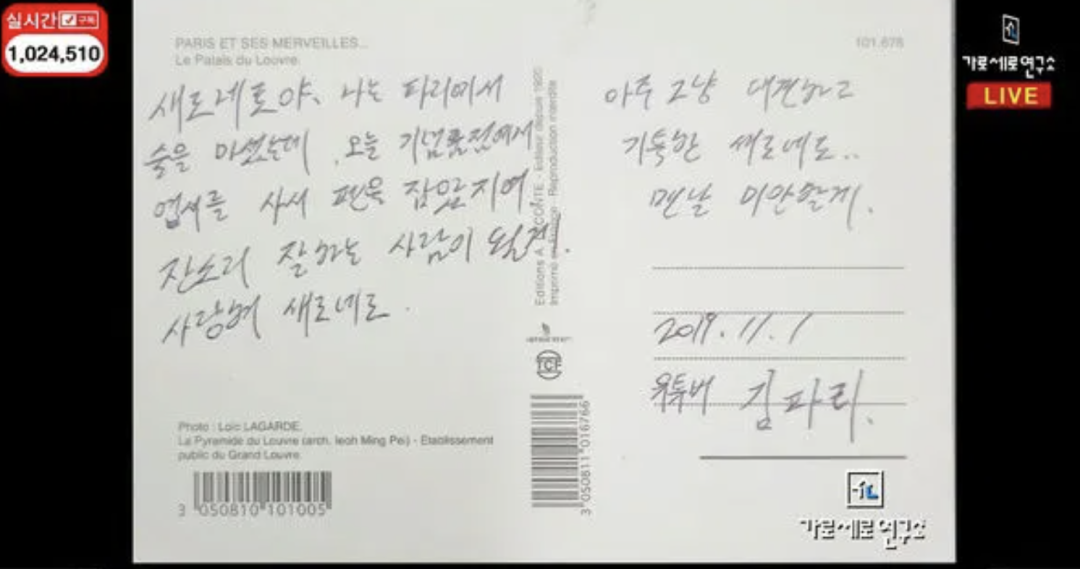 실시간 구독
1,024,510
가로세로연구소
LIVE
PARIS ET SES MERVEILLES...
Le Palais du Louvre.
101.678
새로네로야, 나는 파리에서
술을 마셨는데, 오늘 기념품점에서
엽서를 사서 펜을 잡았지여.
잔소리 잘하는 사람이 될게.
사랑해 새로네로.
아주 그냥 대견하고
기특한 새로네로..
맨날 미안할게.
2019.11.1
유튜버 김파리.
Editions A. LECONTE - Editeur depuis 1920
Reproduction interdite
TCF
Photo : Loïc LAGARDE.
La Pyramide du Louvre (arch. Ieoh Ming Pei) - Etablissement
public du Grand Louvre.
3 050810 101005
3 050811 016766
가로세로연구소